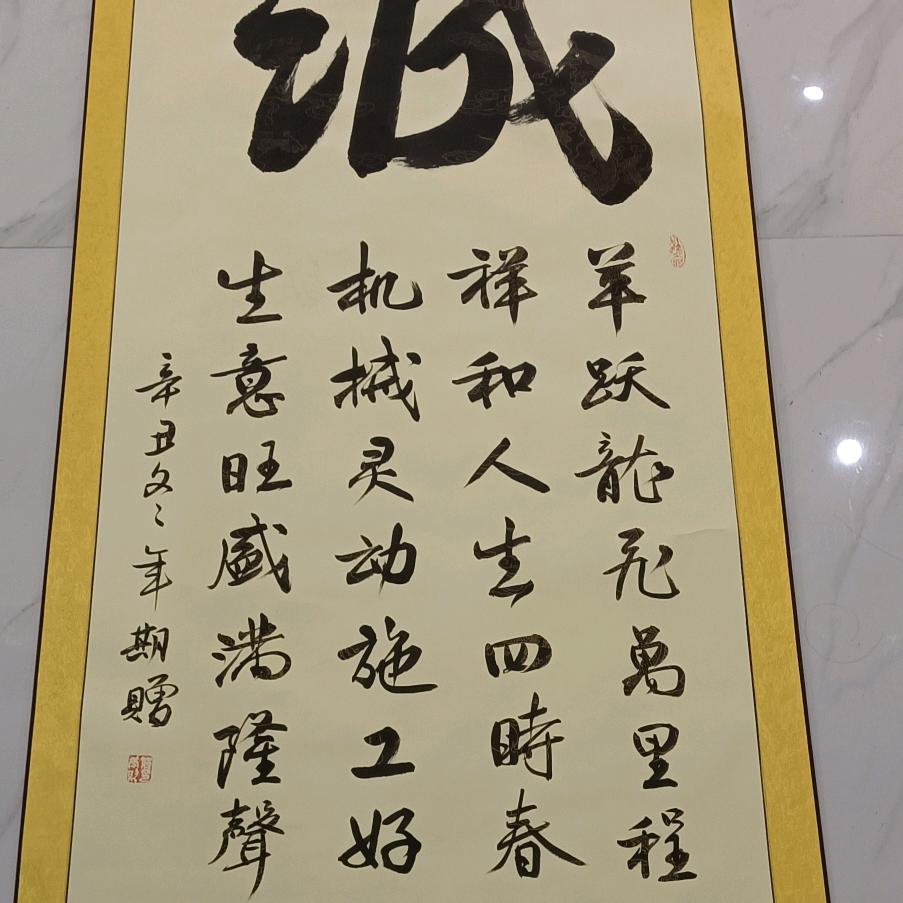 诚
羊跃龍飛萬里程
祥和人生四時春
机械灵动施工好
生意旺盛满隆聲
辛丑冬々年期赠